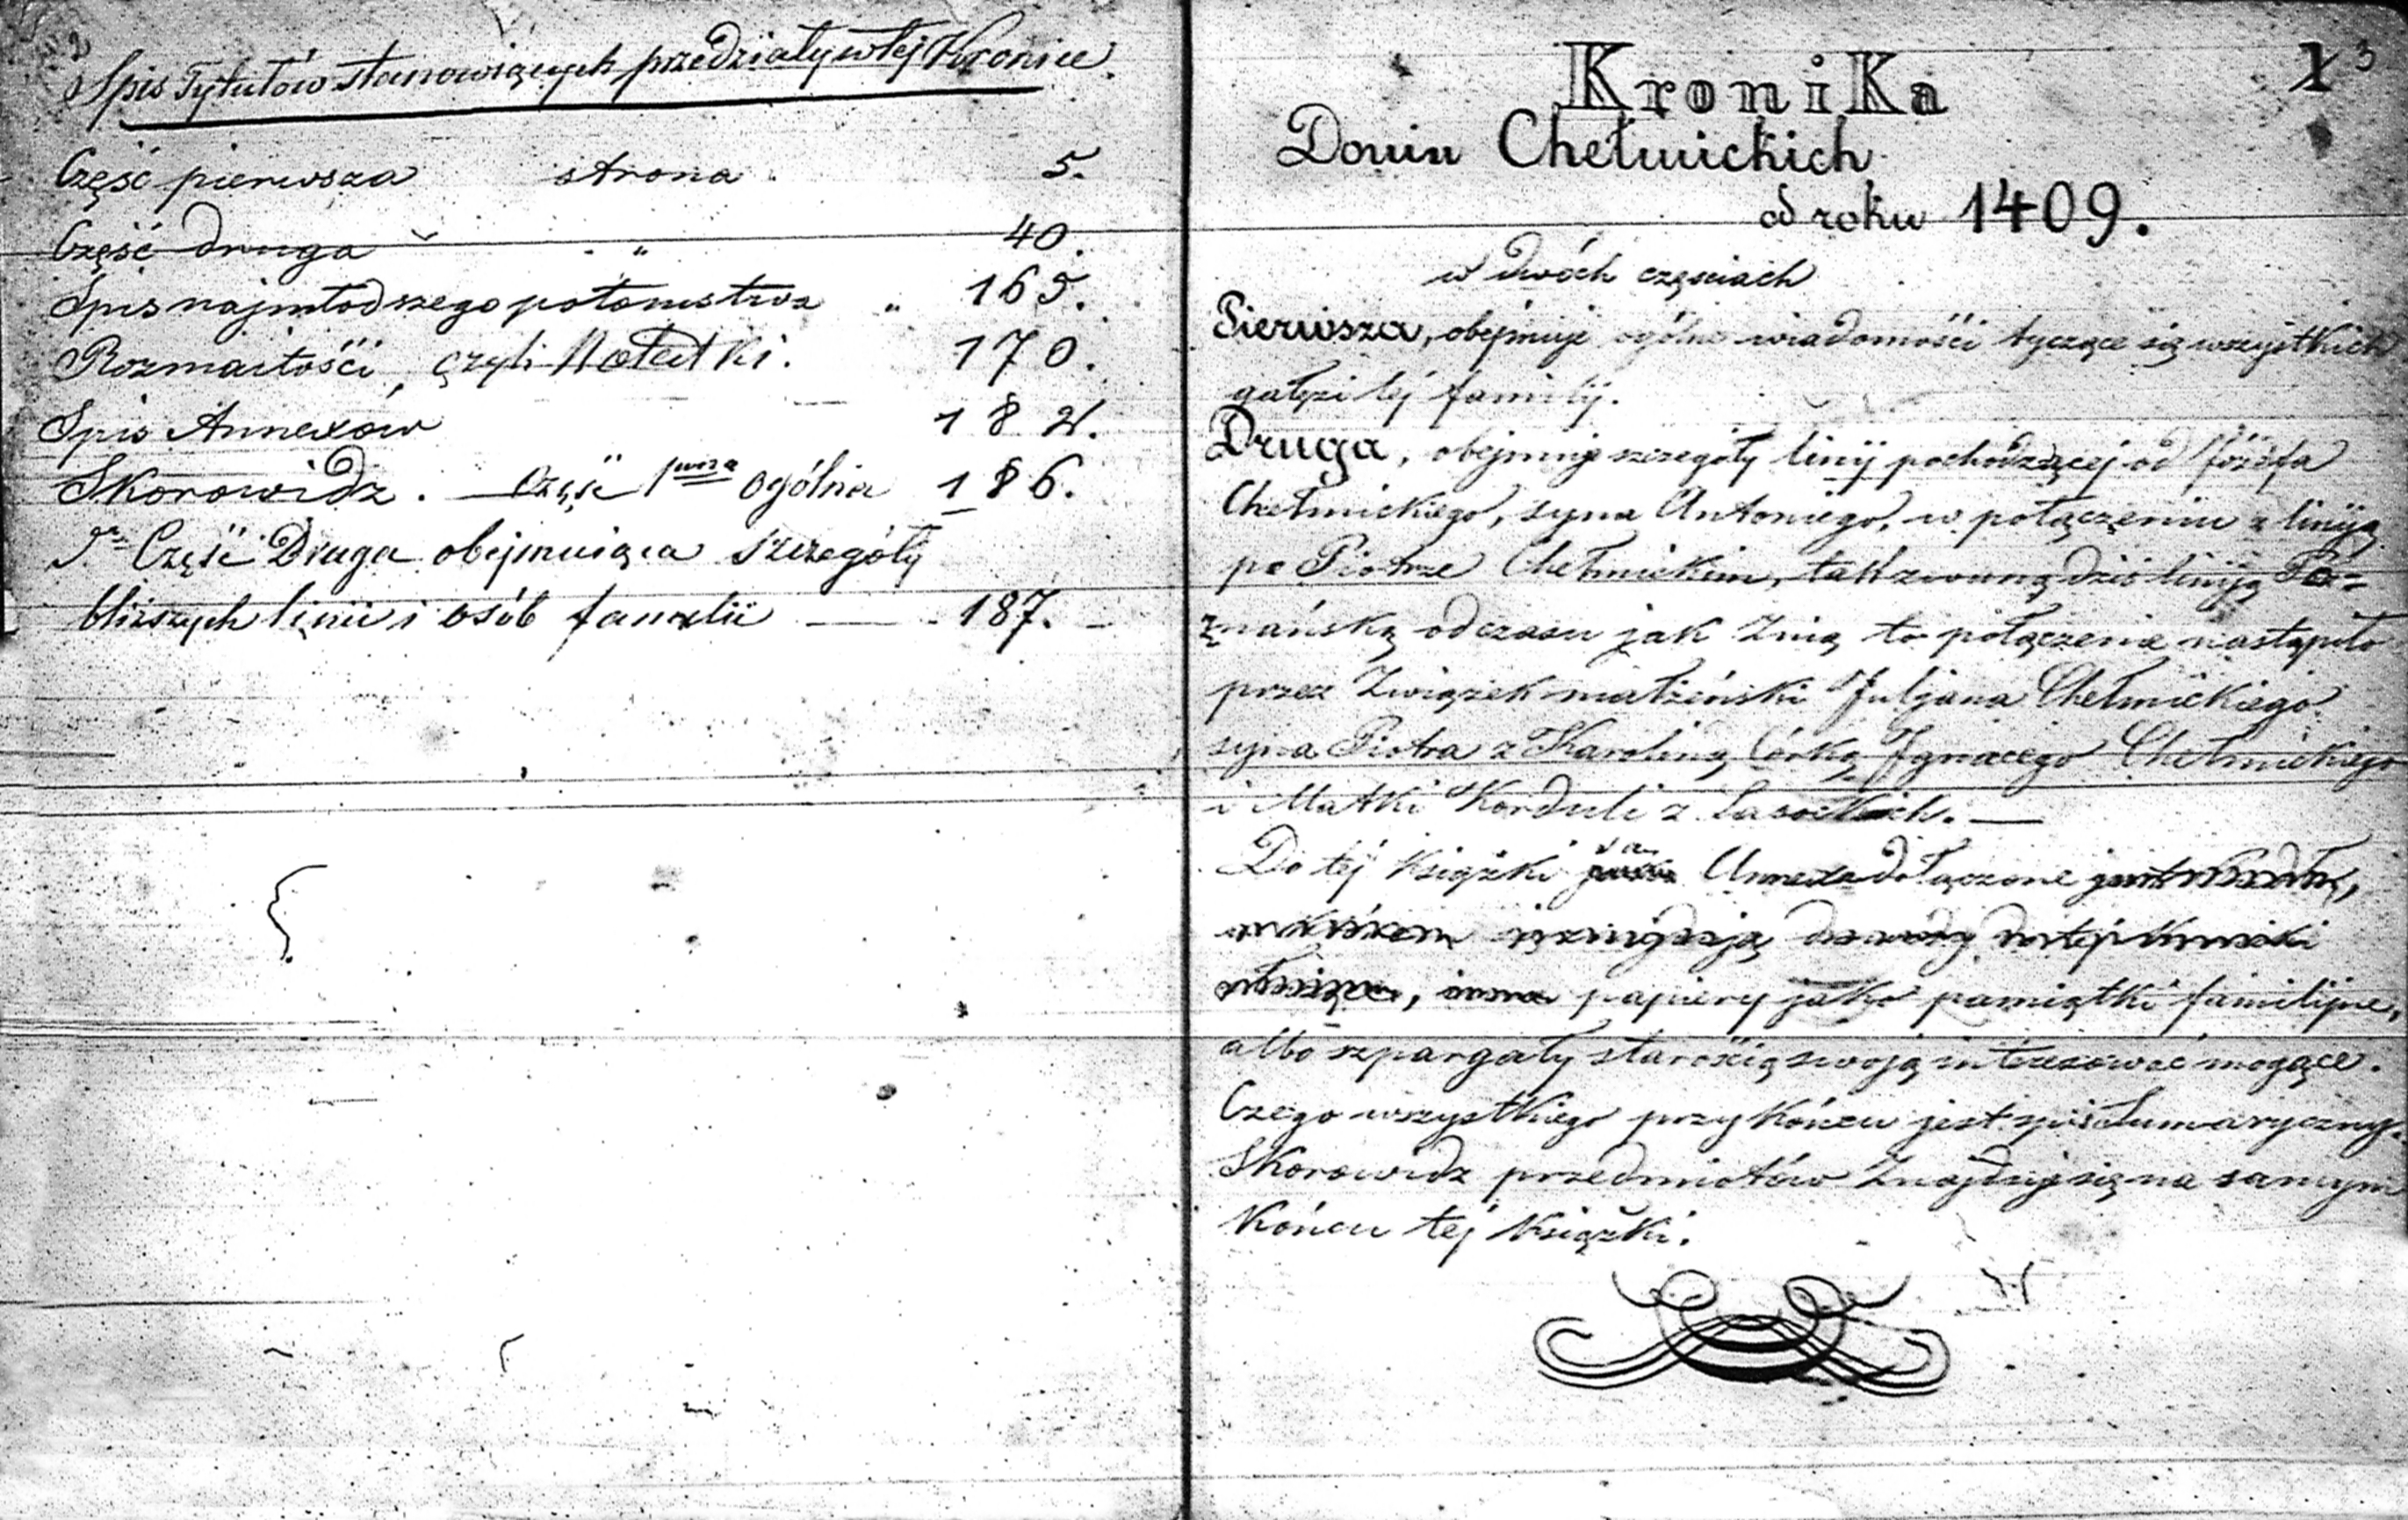 2
Spis Tytułów stanowiących przedziały w tej Kronice.
Część pierwsza strona 5.
Część druga " 40.
Spis najmłodszego potomstwa " 165.
Rozmaitości, czyli Notatki. 170.
Spis Annexów 182.
Skorowidz. — Część 1wsza ogólna 186.
Część Druga obejmuiąca szczegóły
bliższych linii i osób familii — 187. —
3
Kronika
Domu Chełmickich
od roku 1409.
w dwóch częściach
Pierwsza, obejmuje ogólne wiadomości tyczące się wszystkich
gałęzi tej familij.
Druga, obejmuje szczegóły linij pochodzącej od Józefa
Chełmickiego, syna Antoniego, w połączeniu z liniją
po Piotrze Chełmickim, tak zwaną dziś liniją Po=
znańską od czasu jak z nią to połączenie nastąpiło
przez Związek małżeński Juljana Chełmickiego
syna Piotra z Karoliną Córką Ignacego Chełmickiego
i Matki Korduli z Lasockich. —
Do tej Książki są Annexa dołączone
papiery jako pamiątki familijne,
albo szpargały starością swoją interesować mogące.
Czego wszystkiego przy Końcu jest spis Sumaryczny.
Skorowidz przedmiotów Znajduje się na samym
Końcu tej Książki.